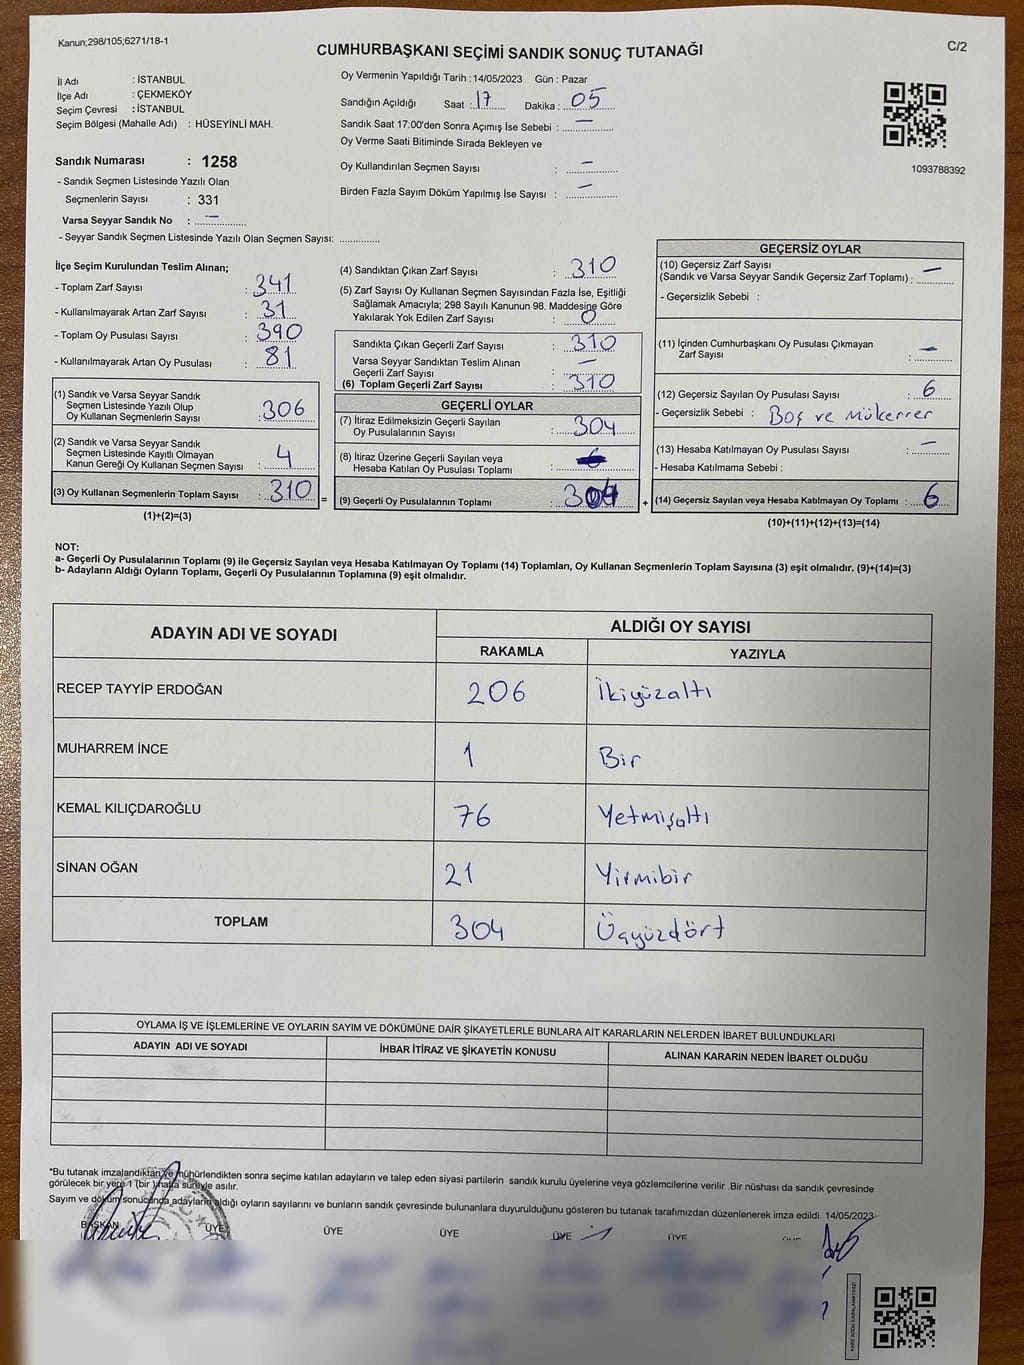 Kanun;298/105;6271/18-1
C/2
CUMHURBAŞKANI SEÇİMİ SANDIK SONUÇ TUTANAĞI
İl Adı : İSTANBUL
İlçe Adı : ÇEKMEKÖY
Seçim Çevresi : İSTANBUL
Seçim Bölgesi (Mahalle Adı) : HÜSEYİNLİ MAH.
Sandık Numarası : 1258
- Sandık Seçmen Listesinde Yazılı Olan
Seçmenlerin Sayısı : 331
Varsa Seyyar Sandık No : —
- Seyyar Sandık Seçmen Listesinde Yazılı Olan Seçmen Sayısı: ............
Oy Vermenin Yapıldığı Tarih : 14/05/2023 Gün : Pazar
Sandığın Açıldığı Saat : 17 Dakika : 05
Sandık Saat 17:00'den Sonra Açımış İse Sebebi : —
Oy Verme Saati Bitiminde Sırada Bekleyen ve
Oy Kullandırılan Seçmen Sayısı : —
Birden Fazla Sayım Döküm Yapılmış İse Sayısı : —
1093788392
İlçe Seçim Kurulundan Teslim Alınan;
- Toplam Zarf Sayısı : 341
- Kullanılmayarak Artan Zarf Sayısı : 31
- Toplam Oy Pusulası Sayısı : 390
- Kullanılmayarak Artan Oy Pusulası : 81
(1) Sandık ve Varsa Seyyar Sandık
Seçmen Listesinde Yazılı Olup
Oy Kullanan Seçmenlerin Sayısı : 306
(2) Sandık ve Varsa Seyyar Sandık
Seçmen Listesinde Kayıtlı Olmayan
Kanun Gereği Oy Kullanan Seçmen Sayısı : 4
(3) Oy Kullanan Seçmenlerin Toplam Sayısı : 310 =
(1)+(2)=(3)
(4) Sandıktan Çıkan Zarf Sayısı : 310
(5) Zarf Sayısı Oy Kullanan Seçmen Sayısından Fazla İse, Eşitliği
Sağlamak Amacıyla; 298 Sayılı Kanunun 98. Maddesine Göre
Yakılarak Yok Edilen Zarf Sayısı : 0
Sandıkta Çıkan Geçerli Zarf Sayısı : 310
Varsa Seyyar Sandıktan Teslim Alınan
Geçerli Zarf Sayısı : —
(6) Toplam Geçerli Zarf Sayısı : 310
GEÇERLİ OYLAR
(7) İtiraz Edilmeksizin Geçerli Sayılan
Oy Pusulalarının Sayısı : 304
(8) İtiraz Üzerine Geçerli Sayılan veya
Hesaba Katılan Oy Pusulası Toplamı :
(9) Geçerli Oy Pusulalarının Toplamı : 304 +
GEÇERSİZ OYLAR
(10) Geçersiz Zarf Sayısı
(Sandık ve Varsa Seyyar Sandık Geçersiz Zarf Toplamı) : —
- Geçersizlik Sebebi :
(11) İçinden Cumhurbaşkanı Oy Pusulası Çıkmayan
Zarf Sayısı : —
(12) Geçersiz Sayılan Oy Pusulası Sayısı : 6
- Geçersizlik Sebebi : Boş ve Mükerrer
(13) Hesaba Katılmayan Oy Pusulası Sayısı : —
- Hesaba Katılmama Sebebi :
(14) Geçersiz Sayılan veya Hesaba Katılmayan Oy Toplamı : 6
(10)+(11)+(12)+(13)=(14)
NOT:
a- Geçerli Oy Pusulalarının Toplamı (9) ile Geçersiz Sayılan veya Hesaba Katılmayan Oy Toplamı (14) Toplamları, Oy Kullanan Seçmenlerin Toplam Sayısına (3) eşit olmalıdır. (9)+(14)=(3)
b- Adayların Aldığı Oyların Toplamı, Geçerli Oy Pusulalarının Toplamına (9) eşit olmalıdır.
ADAYIN ADI VE SOYADI ALDIĞI OY SAYISI
RAKAMLA YAZIYLA
RECEP TAYYİP ERDOĞAN 206 İkiyüzaltı
MUHARREM İNCE 1 Bir
KEMAL KILIÇDAROĞLU 76 Yetmişaltı
SİNAN OĞAN 21 Yirmibir
TOPLAM 304 Üçyüzdört
OYLAMA İŞ VE İŞLEMLERİNE VE OYLARIN SAYIM VE DÖKÜMÜNE DAİR ŞİKAYETLERLE BUNLARA AİT KARARLARIN NELERDEN İBARET BULUNDUKLARI
ADAYIN ADI VE SOYADI İHBAR İTİRAZ VE ŞİKAYETİN KONUSU ALINAN KARARIN NEDEN İBARET OLDUĞU
*Bu tutanak imzalandıktan ve mühürlendikten sonra seçime katılan adayların ve talep eden siyasi partilerin sandık kurulu üyelerine veya gözlemcilerine verilir .Bir nüshası da sandık çevresinde
görülecek bir yere 1 (bir) hafta süreyle asılır.
Sayım ve döküm sonucunda adayların aldığı oyların sayılarını ve bunların sandık çevresinde bulunanlara duyurulduğunu gösteren bu tutanak tarafımızdan düzenlenerek imza edildi. 14/05/2023
BAŞKAN ÜYE ÜYE ÜYE ÜYE ÜYE
KARE KODU KARALAMAYINIZ!